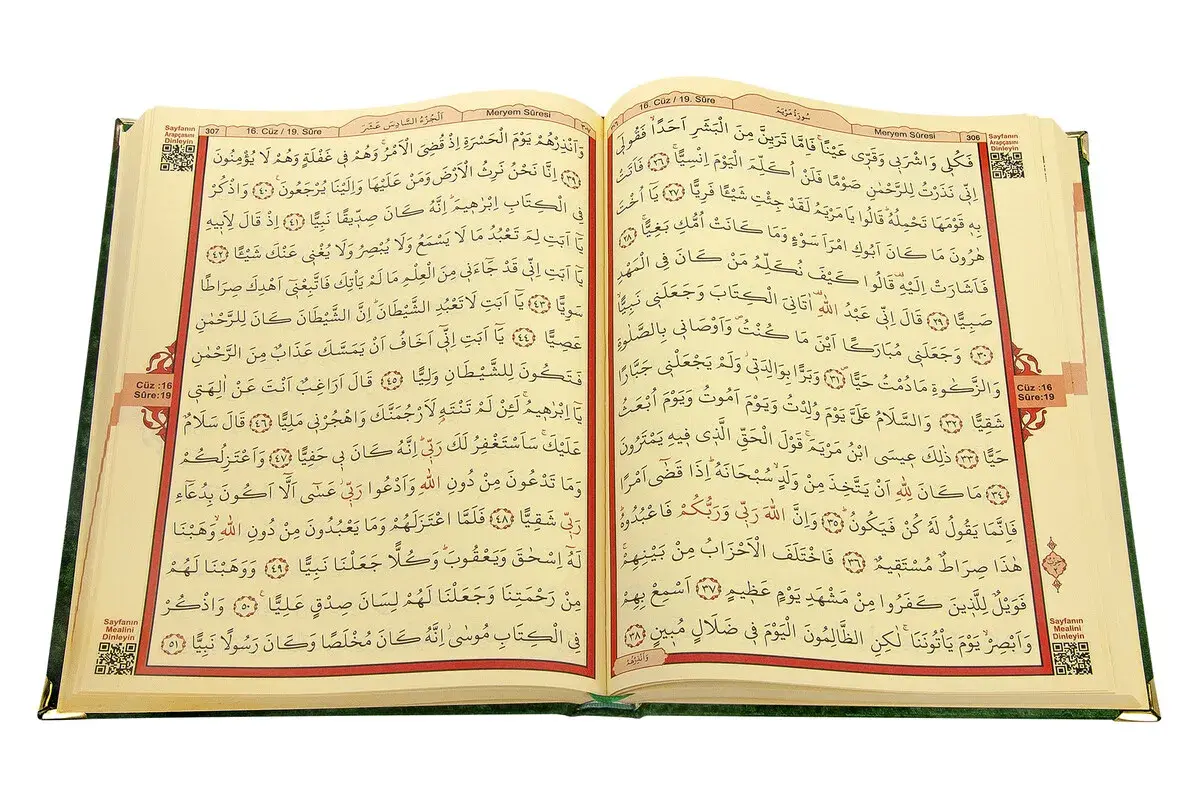 Sayfanın
Arapçasını
Dinleyin
306
Meryem Sûresi
سُورَةُ مَرْيَمَ
16. Cüz / 19. Sûre
فَكُلٖى وَاشْرَبٖى وَقَرّٖى عَيْنًاۚ فَاِمَّا تَرَيِنَّ مِنَ الْبَشَرِ اَحَدًاۙ فَقُولٖٓى
اِنّٖى نَذَرْتُ لِلرَّحْمٰنِ صَوْمًا فَلَنْ اُكَلِّمَ الْيَوْمَ اِنْسِيًّاۚ ﴿٢٦﴾ فَاَتَتْ
بِهٖ قَوْمَهَا تَحْمِلُهُؕ قَالُوا يَا مَرْيَمُ لَقَدْ جِئْتِ شَيْئًا فَرِيًّا ﴿٢٧﴾ يَٓا اُخْتَ
هٰرُونَ مَا كَانَ اَبُوكِ امْرَاَ سَوْءٍ وَمَا كَانَتْ اُمُّكِ بَغِيًّاۚ ﴿٢٨﴾
فَاَشَارَتْ اِلَيْهِؕ قَالُوا كَيْفَ نُكَلِّمُ مَنْ كَانَ فِى الْمَهْدِ
صَبِيًّا ﴿٢٩﴾ قَالَ اِنّٖى عَبْدُ اللّٰهِؕ اٰتَانِىَ الْكِتَابَ وَجَعَلَنٖى نَبِيًّاۙ
﴿٣٠﴾ وَجَعَلَنٖى مُبَارَكًا اَيْنَ مَا كُنْتُۖ وَاَوْصَانٖى بِالصَّلٰوةِ
وَالزَّكٰوةِ مَا دُمْتُ حَيًّاۖ ﴿٣١﴾ وَبَرًّا بِوَالِدَتٖى وَلَمْ يَجْعَلْنٖى جَبَّارًا
شَقِيًّا ﴿٣٢﴾ وَالسَّلَامُ عَلَىَّ يَوْمَ وُلِدْتُ وَيَوْمَ اَمُوتُ وَيَوْمَ اُبْعَثُ
حَيًّا ﴿٣٣﴾ ذٰلِكَ عٖيسَى ابْنُ مَرْيَمَۚ قَوْلَ الْحَقِّ الَّذٖى فٖيهِ يَمْتَرُونَ
﴿٣٤﴾ مَا كَانَ لِلّٰهِ اَنْ يَتَّخِذَ مِنْ وَلَدٍۙ سُبْحَانَهُؕ اِذَا قَضٰٓى اَمْرًا
فَاِنَّمَا يَقُولُ لَهُ كُنْ فَيَكُونُؕ ﴿٣٥﴾ وَاِنَّ اللّٰهَ رَبّٖى وَرَبُّكُمْ فَاعْبُدُوهُؕ
هٰذَا صِرَاطٌ مُسْتَقٖيمٌ ﴿٣٦﴾ فَاخْتَلَفَ الْاَحْزَابُ مِنْ بَيْنِهِمْۚ
فَوَيْلٌ لِلَّذٖينَ كَفَرُوا مِنْ مَشْهَدِ يَوْمٍ عَظٖيمٍ ﴿٣٧﴾ اَسْمِعْ بِهِمْ
وَاَبْصِرْۙ يَوْمَ يَاْتُونَنَا لٰكِنِ الظَّالِمُونَ الْيَوْمَ فٖى ضَلَالٍ مُبٖينٍ ﴿٣٨﴾
وَاَنْذِرْهُمْ
Cüz :16
Sûre:19
Sayfanın
Mealini
Dinleyin
Meryem Sûresi
اَلْجُزْءُ السَّادِسَ عَشَرَ
16. Cüz / 19. Sûre
307
Sayfanın
Arapçasını
Dinleyin
وَاَنْذِرْهُمْ يَوْمَ الْحَسْرَةِ اِذْ قُضِىَ الْاَمْرُۘ وَهُمْ فٖى غَفْلَةٍ وَهُمْ لَا يُؤْمِنُونَ
﴿٣٩﴾ اِنَّا نَحْنُ نَرِثُ الْاَرْضَ وَمَنْ عَلَيْهَا وَاِلَيْنَا يُرْجَعُونَ۟ ﴿٤٠﴾ وَاذْكُرْ
فِى الْكِتَابِ اِبْرٰهٖيمَؕ اِنَّهُ كَانَ صِدّٖيقًا نَبِيًّا ﴿٤١﴾ اِذْ قَالَ لِاَبٖيهِ
يَٓا اَبَتِ لِمَ تَعْبُدُ مَا لَا يَسْمَعُ وَلَا يُبْصِرُ وَلَا يُغْنٖى عَنْكَ شَيْئًا ﴿٤٢﴾
يَٓا اَبَتِ اِنّٖى قَدْ جَٓاءَنٖى مِنَ الْعِلْمِ مَا لَمْ يَاْتِكَ فَاتَّبِعْنٖٓى اَهْدِكَ صِرَاطًا
سَوِيًّا ﴿٤٣﴾ يَٓا اَبَتِ لَا تَعْبُدِ الشَّيْطَانَؕ اِنَّ الشَّيْطَانَ كَانَ لِلرَّحْمٰنِ
عَصِيًّا ﴿٤٤﴾ يَٓا اَبَتِ اِنّٖٓى اَخَافُ اَنْ يَمَسَّكَ عَذَابٌ مِنَ الرَّحْمٰنِ
فَتَكُونَ لِلشَّيْطَانِ وَلِيًّا ﴿٤٥﴾ قَالَ اَرَاغِبٌ اَنْتَ عَنْ اٰلِهَتٖى
يَٓا اِبْرٰهٖيمُۚ لَئِنْ لَمْ تَنْتَهِ لَاَرْجُمَنَّكَ وَاهْجُرْنٖى مَلِيًّا ﴿٤٦﴾ قَالَ سَلَامٌ
عَلَيْكَۚ سَاَسْتَغْفِرُ لَكَ رَبّٖىؕ اِنَّهُ كَانَ بٖى حَفِيًّا ﴿٤٧﴾ وَاَعْتَزِلُكُمْ
وَمَا تَدْعُونَ مِنْ دُونِ اللّٰهِ وَاَدْعُوا رَبّٖىؗ عَسٰٓى اَلَّٓا اَكُونَ بِدُعَٓاءِ
رَبّٖى شَقِيًّا ﴿٤٨﴾ فَلَمَّا اعْتَزَلَهُمْ وَمَا يَعْبُدُونَ مِنْ دُونِ اللّٰهِۙ وَهَبْنَا
لَهُٓ اِسْحٰقَ وَيَعْقُوبَؕ وَكُلًّا جَعَلْنَا نَبِيًّا ﴿٤٩﴾ وَوَهَبْنَا لَهُمْ
مِنْ رَحْمَتِنَا وَجَعَلْنَا لَهُمْ لِسَانَ صِدْقٍ عَلِيًّا۟ ﴿٥٠﴾ وَاذْكُرْ
فِى الْكِتَابِ مُوسٰىؗ اِنَّهُ كَانَ مُخْلَصًا وَكَانَ رَسُولًا نَبِيًّا ﴿٥١﴾
Cüz :16
Sûre:19
Sayfanın
Mealini
Dinleyin